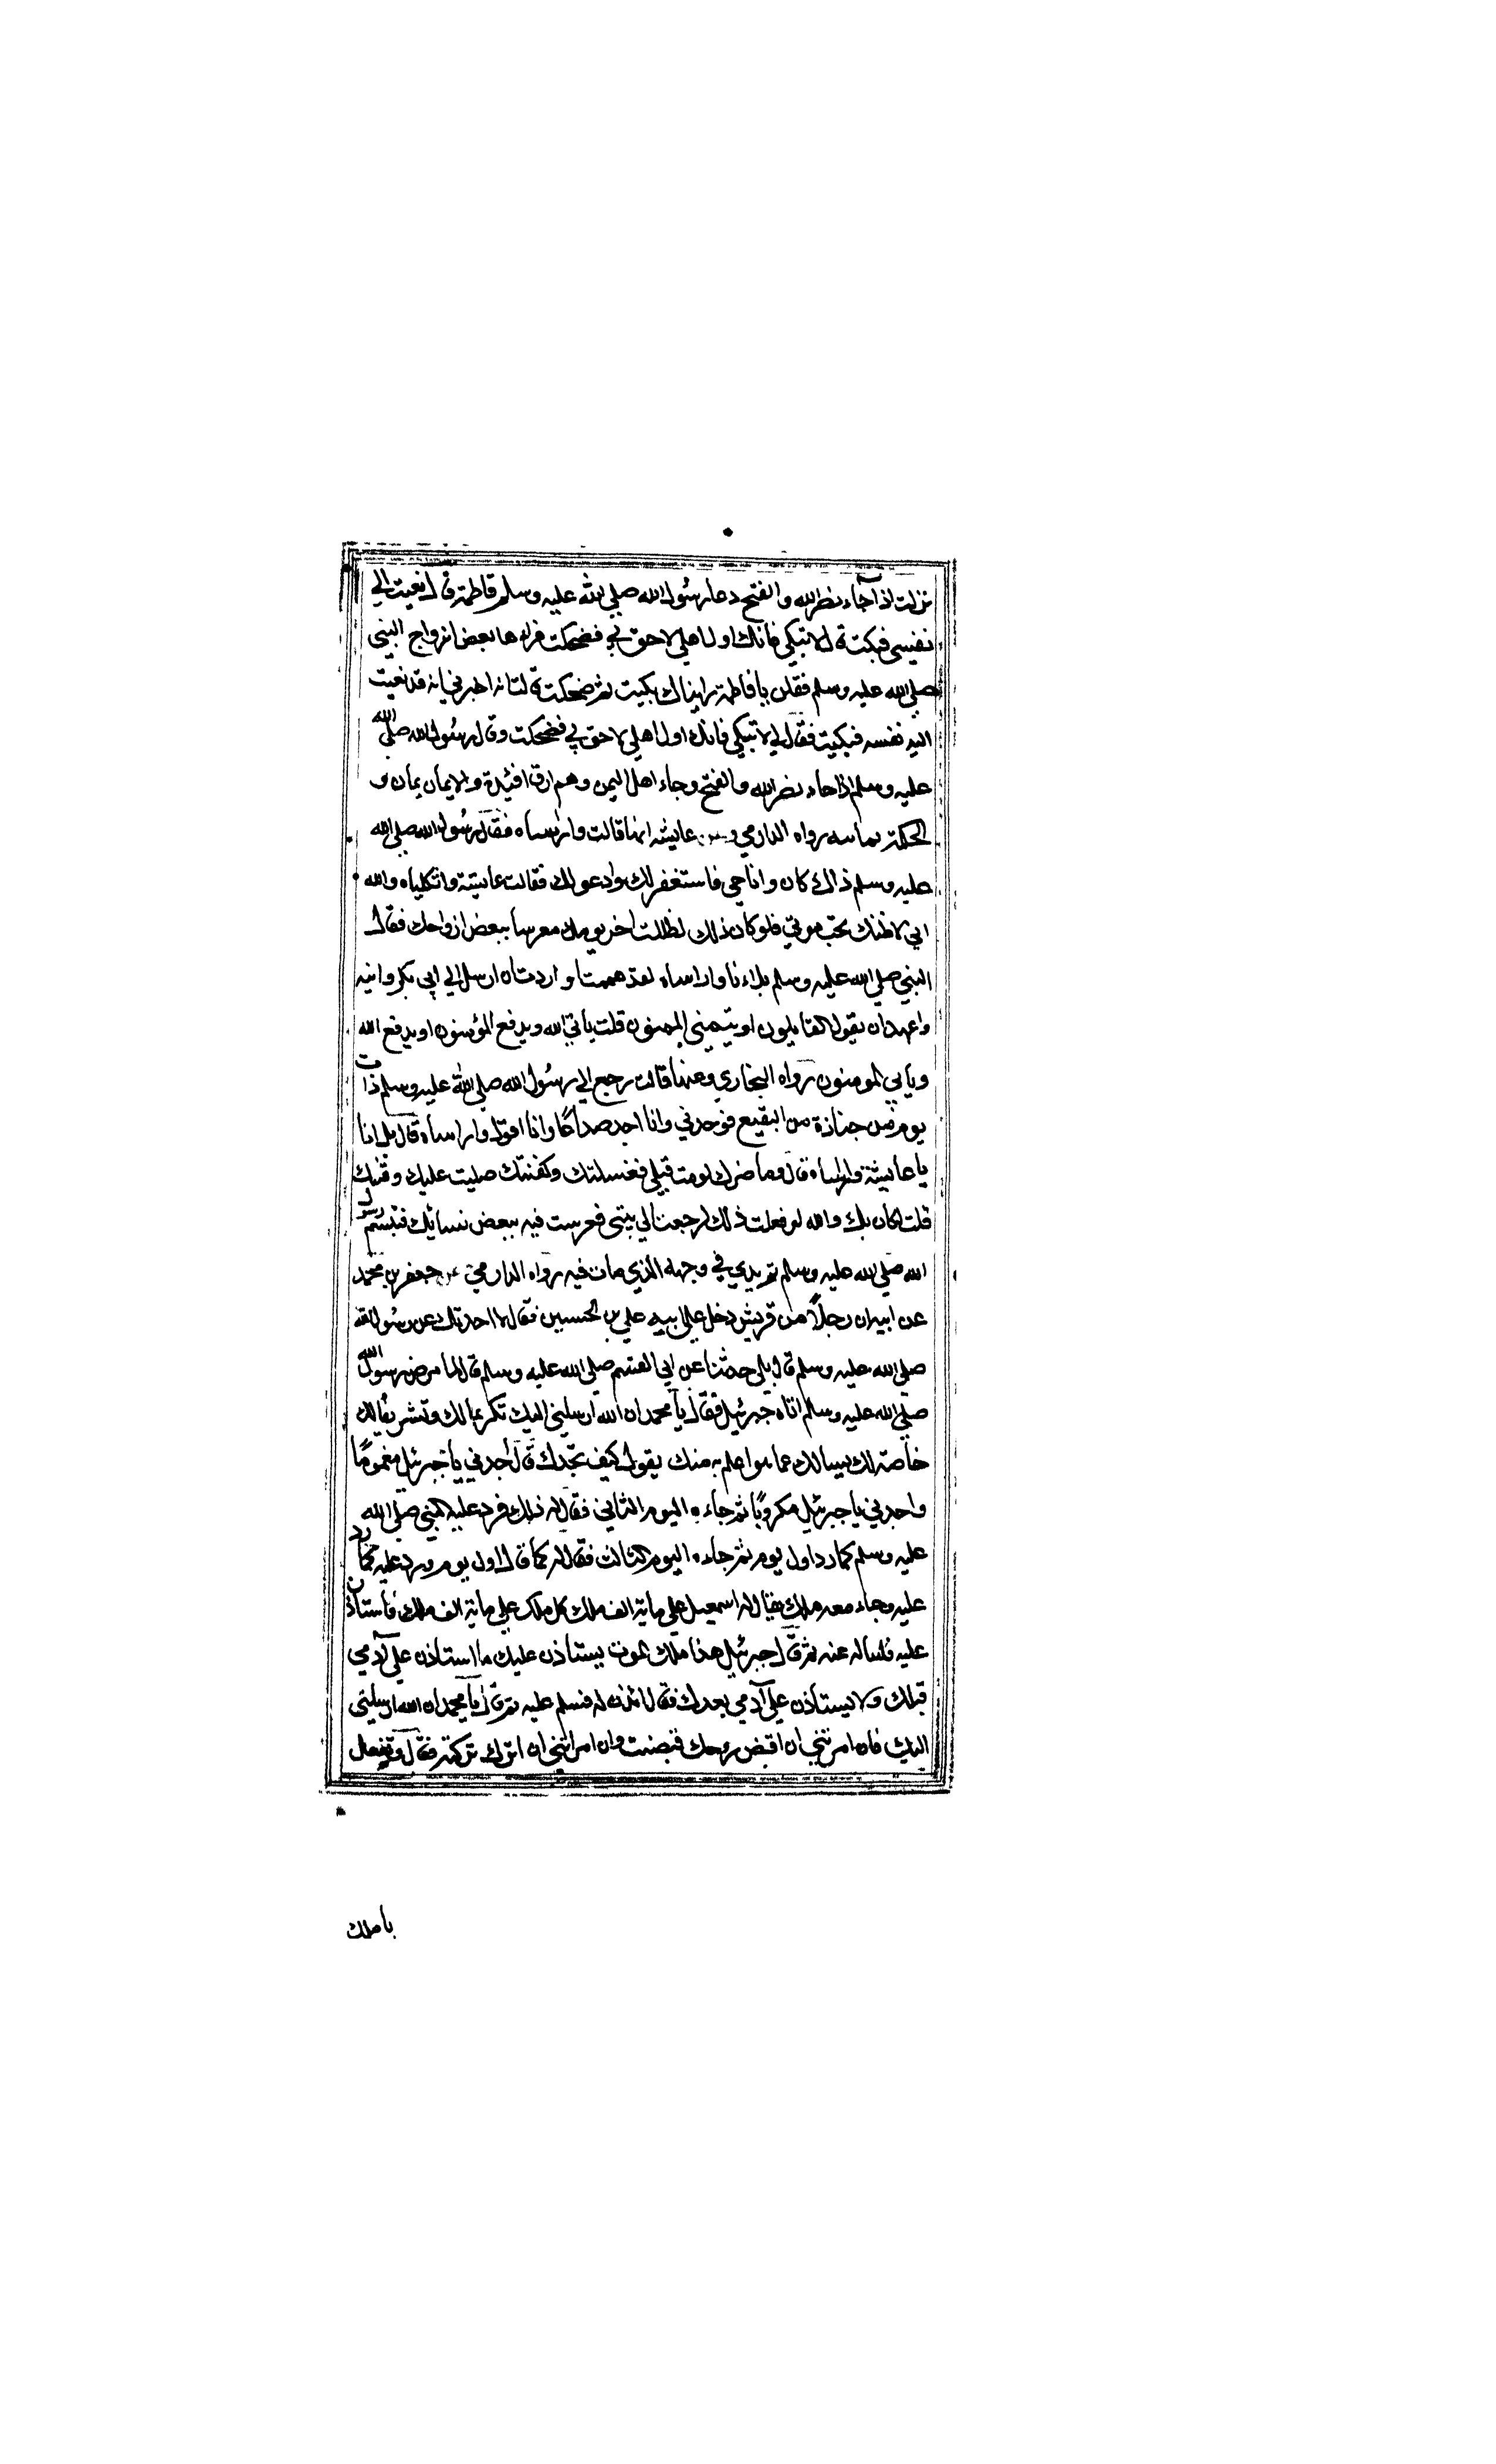 نزلت اذا جاء نصر الله والفتح دعا رسول الله صلي الله عليه وسلم فاطمة قال نعيت الي
نفيسي فبكت قال لا تبكي فانك اول اهلي لاحق بي فضحكت فراها بعض ازواج النبي
صلي الله عليه وسلم فقلن يا فاطمة رايناك بكيت ثم ضحكت قالت انه اخبرني انه قد نعيت
اليه نفسه فبكيت فقال لي لا تبكي فانك اول اهلي لاحق بي فضحكت وقال رسول الله صلي الله
عليه وسلم اذا جاء نصر الله والفتح وجاء اهل اليمن وهم ارق افئدة والايمان يمان و
الحكمة يمانيه رواه الدارمي وعن عايشه انها قالت واراساه فقال رسول الله صلي الله
عليه وسلم ذاك لو كان وانا حي فاستغفر لك وادعو لك فقالت عايشة واثكلياه والله
اني لاظنك تحب موتي فلو كان ذلك لظللت اخر يومك معرسا ببعض ازواجك فقال
النبي صلي الله عليه وسلم بل انا واراساه لقد هممت او اردت ان ارسل الي ابي بكر وابنه
واعهد ان يقول القايلون او يتمني المتمنون قلت يأبي الله ويدفع المؤمنون او يدفع الله
ويابي المومنون رواه البخاري وعنها قالت رجع الي رسول الله صلي الله عليه وسلم ذات
يوم من جنازة من البقيع فوجدني وانا اجد صداعًا وانا اقول واراساه قال بل انا
يا عايشة واراساه قال وما ضرك لو مت قبلي فغسلتك وكفنتك صليت عليك ودفنتك
قلت لكان بك والله لو فعلت ذلك لرجعت الي بيتي فعرست فيه ببعض نسائك فتبسم رسول
الله صلي الله عليه وسلم ثم بدي في وجهه الذي مات فيه رواه الدارمي عن جعفر بن محمد
عن ابيه ان رجلًا من قريش دخل علي ابيه علي بن الحسين فقال الا احدثك عن رسول الله
صلي الله عليه وسلم قال بلي حدثنا عن ابي القسم صلي الله عليه وسلم قال لما مرض رسول الله
صلي الله عليه وسلم اتاه جبرئيل فقال يا محمد ان الله ارسلني اليك تكريما لك وتشريفًا لك
خاصة لك يسالك عما هو اعلم به منك يقول كيف تجدك قال اجدني يا جبرئيل مغمومًا
واجدني يا جبرئيل مكروبًا ثم جاءه اليوم الثاني فقال له ذلك فرد عليه النبي صلي الله
عليه وسلم كما رد اول يوم ثم جاءه اليوم الثالث فقال له كما قال اول يوم ورد عليه كما رد
عليه وجاء معه ملك يقال له اسمعيل علي ماية الف ملك كل ملك علي ماية الف ملك فاستاذن
عليه فساله عنه ثم قال جبرئيل هذا ملك الموت يستاذن عليك ما استاذن علي آدمي
قبلك ولا يستأذن علي آدمي بعدك فقال ائذن له فسلم عليه ثم قال يا محمد ان الله ارسلني
اليك فان امرتني ان اقبض روحك قبضت وان امرتني ان اترك تركته فقال وتفعل
يا ملك